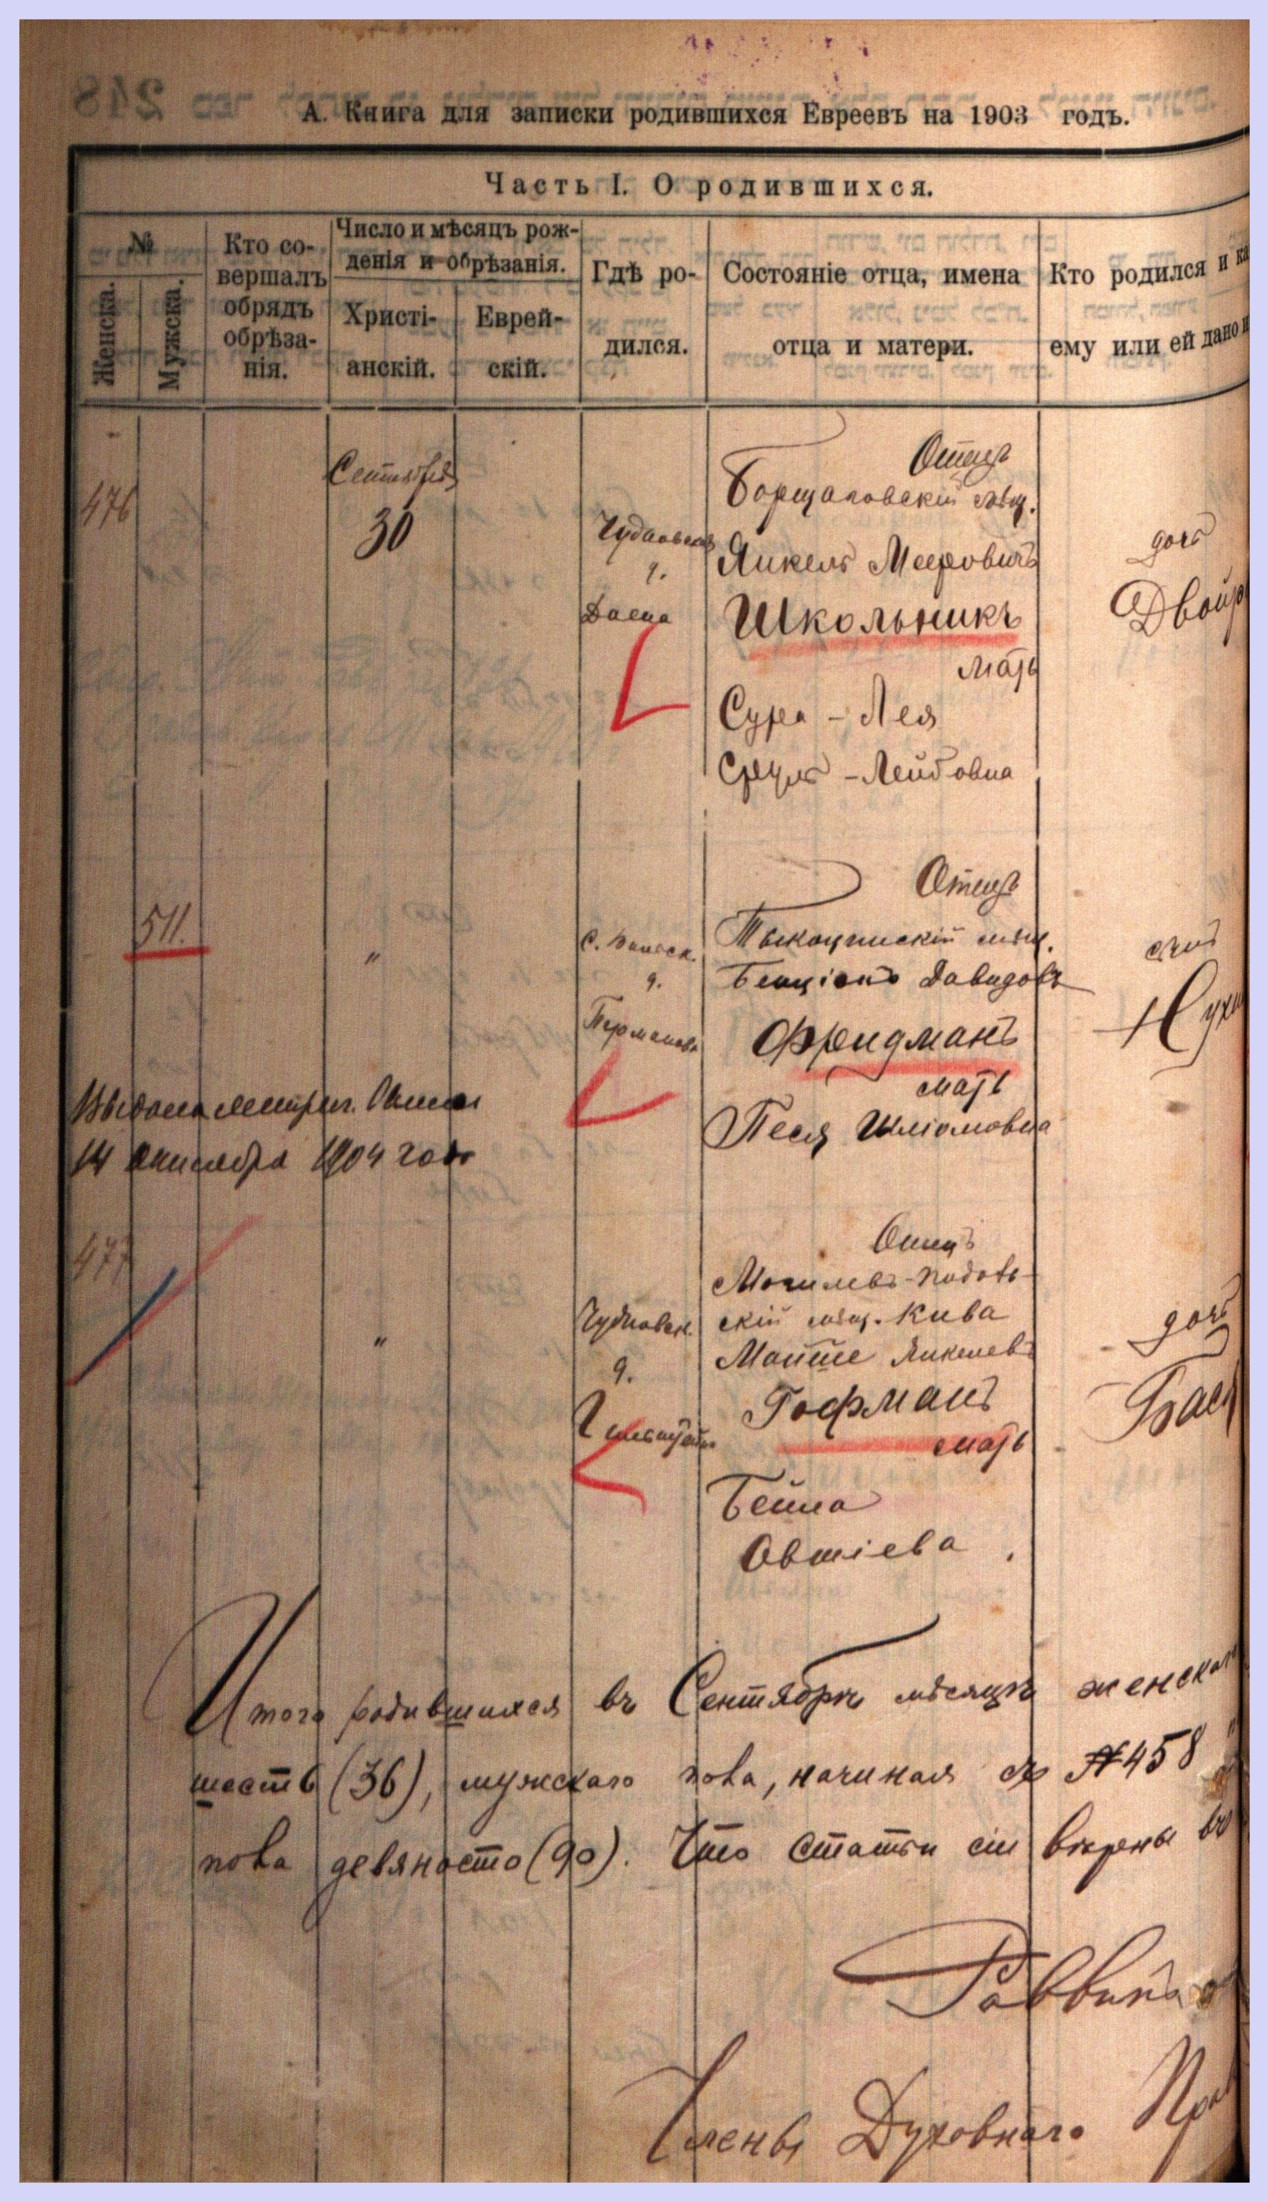 А. Книга для записки родившихся Евреевъ на 1903 годъ.
Часть I. О родившихся.
№
Женска.
Мужска.
Кто со-
вершалъ
обрядъ
обрѣза-
нія.
Число и мѣсяцъ рож-
денія и обрѣзанія.
Христі-
анскій.
Еврей-
скій.
Гдѣ ро-
дился.
Состояніе отца, имена
отца и матери.
Кто родился и ка
ему или ей дано и
476
Сентября
30
Чудновская
ч.
Отецъ
мѣщ.
Янкель Мееровичъ
Школьникъ
мать
Сура - Лея
Сруль - Лейбовна
дочь
Двойр
511.
"
ч.
Отецъ
мѣщ.
Бенціонъ Давидовъ
Фридманъ
мать
Песя Шліомовна
сынъ
Нухи
Выдана метрич.
14 1904 года
477
"
Чудновск.
ч.
Отецъ
Могилевъ-Подоль-
скій мѣщ. Кива
Мойше Янкелевъ
Гофманъ
мать
Бейла
Овшіева
дочь
Бася
Итого родившихся въ Сентябрѣ мѣсяцѣ женскаго
шесть (36), мужскаго пола, начиная съ №458
пола девяносто (90). Что статьи сіи вѣрены въ
Раввинъ
Члены Духовнаго Прав